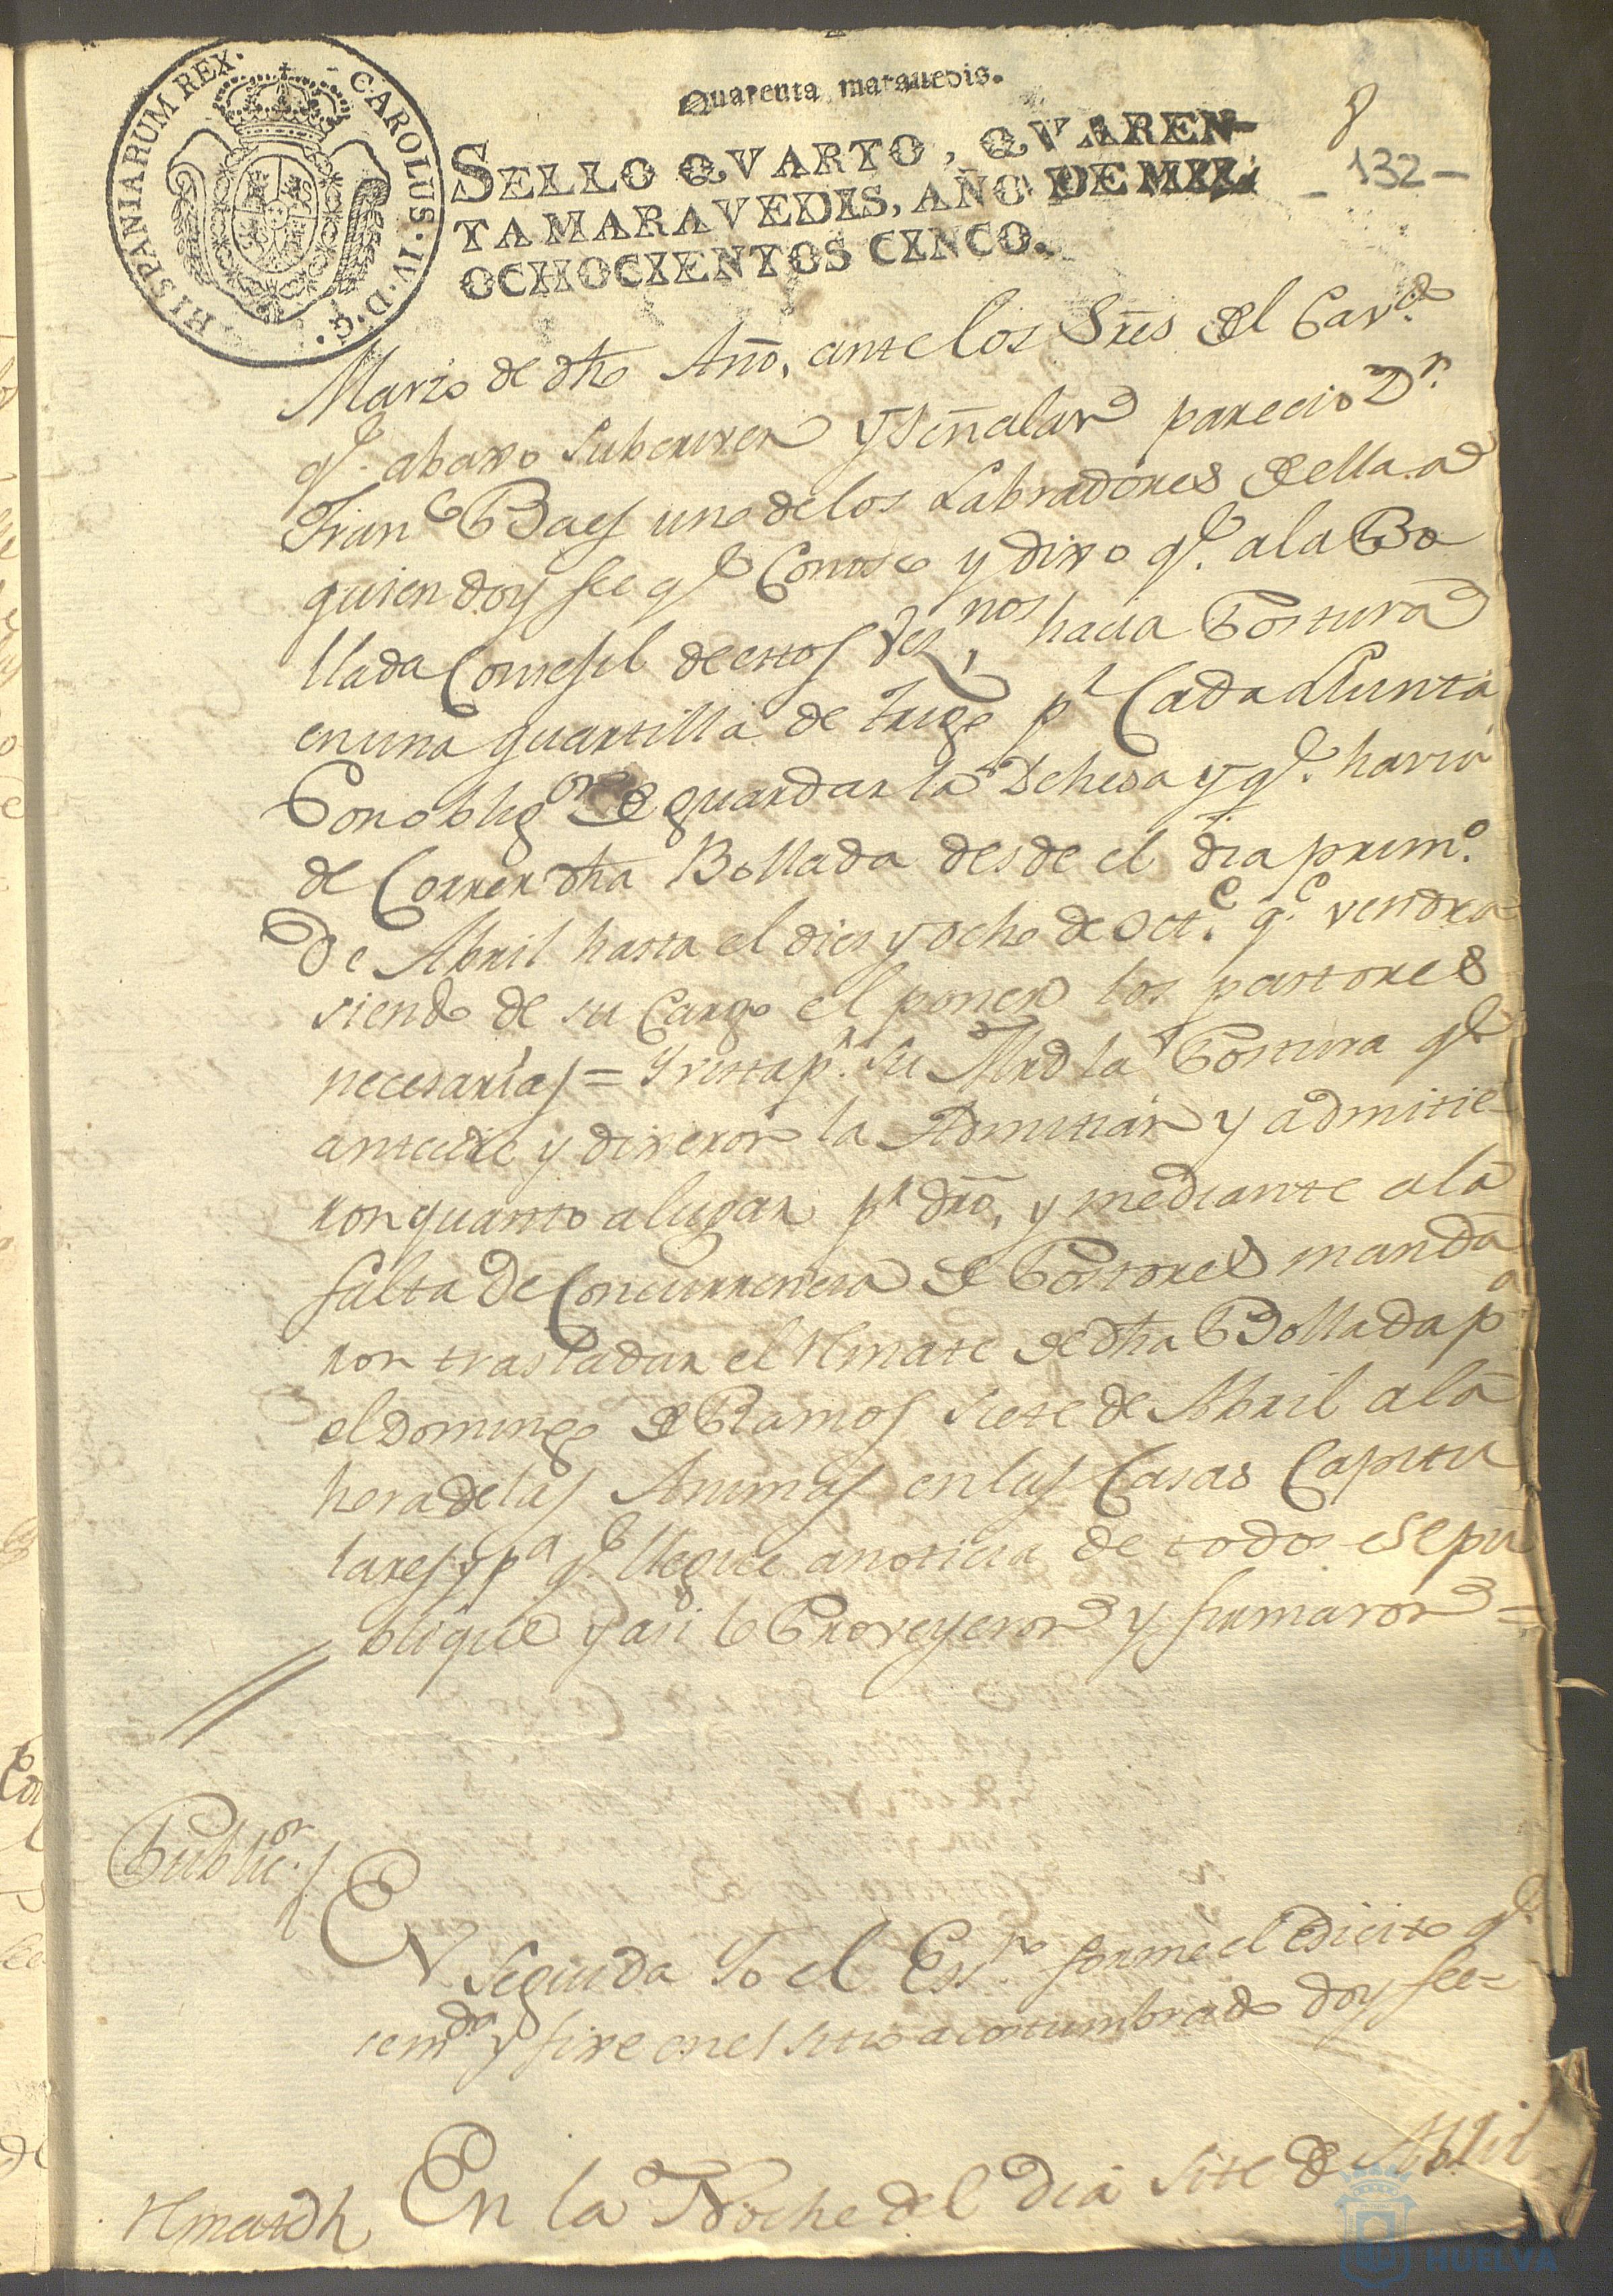 Quarenta maravedis.
SELLO QVARTO, QVAREN-
TA MARAVEDIS, AÑO DE MIL
OCHOCIENTOS CINCO.
CAROLUS·IV·D·G·HISPANIARUM REX·
8
- 132 -
Marzo de dho Año, ante los Sres del Cav.do
q.e abaxo subcriven y señalan parecio D.n
Fran.co Baes uno de los Labradores de ella a
quien doy fee q.e Conosco y dixo q.e a la Bo
llada Consejil de estos Vesnos, hacia Postura
en una quartilla de trigo p.r Cada Llunta
Con obligon de guardar la Dehesa y q.e havia
de Correr dha Bollada desde el dia prim.o
De Abril hasta el dies y ocho de Oct.e q.e vendra
siendo de su Cargo el poner los pastores
necesarias = Y vista p.r su Mrd la Postura q.e
antecede y dixeron la Admitian y admitie
ron quanto a lugar p.r dro, y mediante a la
falta de Concurrencia de Postores manda
ron trasladar el Rmate de dha Bollada p.a
el Domingo de Ramos siete de Abril a la
hora de las Animas en las Casas Capitu
lares y p.a q.e llegue a noticia de todos se pu
blique y asi lo Proveyeron y firmaron =
Public.on
En Seguida Yo el Ess.no formè el Edicto q.e
semda y fixe en el sitio acostumbrado doy fee=
En la Noche del dia siete de Abril
HUELVA